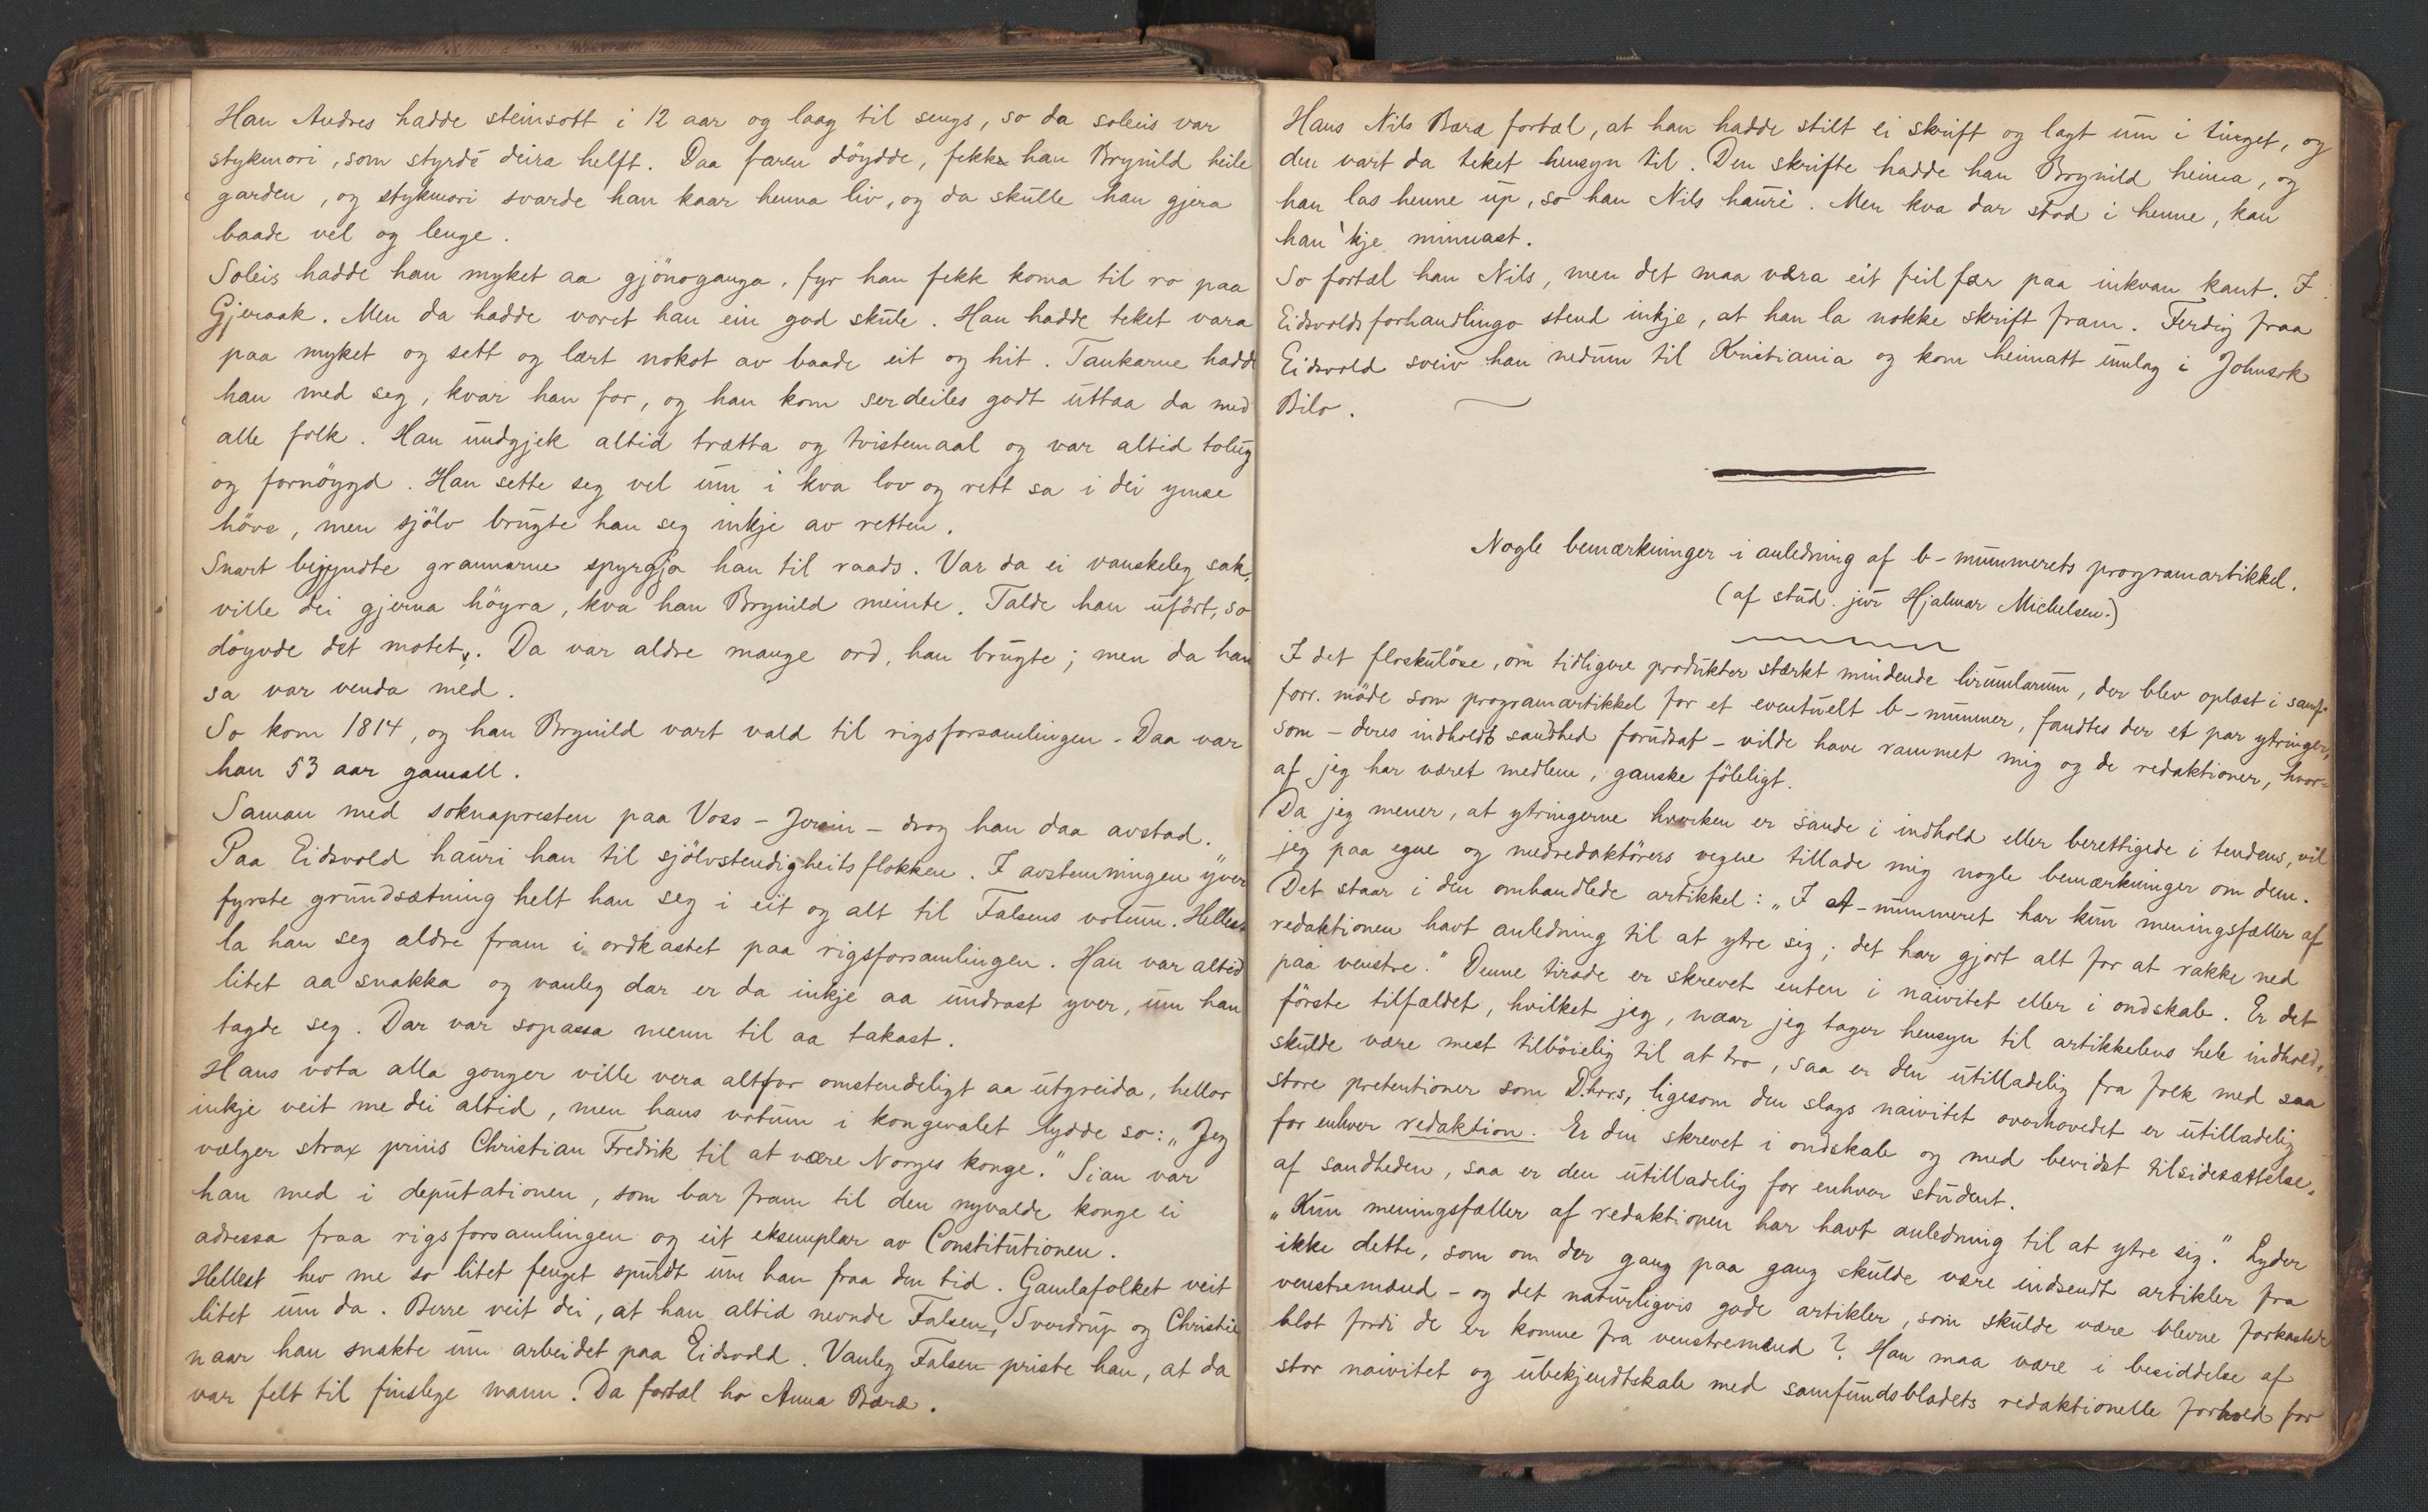 Han Andres hadde steinsott i 12 aar og laag til sengs, so da soleis var
stykmori, som styrdé deira helft. Daa faren döydde, fekk han Brynild heile
garden, og stykmori svarde han kaar henna liv, og da skulle han gjera
baade vel og lenge.
Soleis hadde han myket aa gjönoganga, fyr han fekk koma til ro paa
Gjeraak. Men da hadde voret han ein god skule. Han hadde teket vara
paa myket og sett og lært nokot av baade eit og hit. Tankarne hadde
han med seg, kvar han for, og han kom serdeiles godt uttaa da med
alle folk. Han undgjek altid trætta og tvistemaal og var altid tolug
og fornöygd. Han sette seg vel um i kva lov og rett sa i dei ymse
höve, men sjölv brugte han seg inkje av retten.
Snart bigyndte grannarne spyrgja han til raads. Var da ei vanskeleg sak,
ville dei gjerna höyra, kva han Brynild meinte. Talde han ufört, so
döyvde det motet. Da var aldre mange ord, han brugte; men da han
sa var venda med.
So kom 1814, og han Brynild vart vald til rigsforsamlingen. Daa var
han 53 aar gamall.
Saman med soknapresten paa Voss - Jersin - drog han daa avstad.
Paa Eidsvold hauri han til sjölvstendigheitsflokken. I avstemningen yver
fyrste grundsætning helt han seg i eit og alt til Falsens votum. Hellest
la han seg aldre fram i ordkastet paa rigsforsamlingen. Han var altid
litet aa snakka og vanleg dar er da inkje aa undrast yver, um han
tagde seg. Dar var sopassa menn til aa takast.
Hans vota alla gonger ville vera altfor omstendeligt aa utgreida, hellor
inkje veit me dei altid, men hans votum i kongevalet lydde so: "Jeg
vælger strax prins Christian Fredrik til at være Norges konge." Sian var
han med i deputationen, som bar fram til den nyvalde konge ei
adressa fraa rigsforsamlingen og eit eksemplar av Constitutionen.
Hellest hev me so litet fenget spurdt um han fraa den tid. Gamlafolket veit
litet um da. Berre veit dei, at han altid nevnde Falsen, Sverdrup og Christie
naar han snakte um arbeidet paa Eidsvold. Vanleg Falsen priste han, at da
var felt til finslege mann. Da fortæl ho Anna Bæræ.
Hans Nils Bæræ fortæl, at han hadde stilt ei skrift og lagt um i tinget, og
den vart da teket hensyn til. Den skrifte hadde han Brynild heima, og
han las henne up, so han Nils hauri. Men kva dar stod i henne, kan
han 'kje minnast.
So fortæl han Nils, men det maa væra eit feil fær paa inkvan kant. I
Eidsvoldsforhandlingo stend inkje, at han la nokke skrift fram. Ferdig fraa
Eidsvold sveiv han nedum til Kristiania og kom heimatt umlag i Johnsok
Bilo.
Nogle bemærkninger i anledning af b-nummerets programartikkel.
(af stud. jur Hjalmar Michelsen.)
I det floskulöse, om tidligere produkter stærkt mindende lirumlarum, der blev oplæst i samf.
forr. möde som programartikkel for et eventuelt b-nummer, fandtes der et par ytringer,
som - deres indholds sandhed forudsat - vilde have rammet mig og de redaktioner, hvor-
af jeg har været medlem, ganske föleligt.
Da jeg mener, at ytringerne hverken er sande i indhold eller berettigede i tendens, vil
jeg paa egne og medredaktörers vegne tillade mig nogle bemærkninger om dem.
Det staar i den omhandlede artikkel: "I A-nummeret har kun meningsfæller af
redaktionen havt anledning til at ytre sig; det har gjort alt for at rakke ned
paa venstre." Denne tirade er skrevet enten i naivitet eller i ondskab. Er det
förste tilfældet, hvilket jeg, naar jeg tager hensyn til artikkelens hele indhold,
skulde være mest tilböielig til at tro, saa er den utilladelig fra folk med saa
store pretentioner som D'hrrs, ligesom den slags naivitet overhovedet er utilladelig
for enhver redaktion. Er den skrevet i ondskab og med bevidst tilsidesættelse
af sandheden, saa er den utilladelig for enhver student.
"Kun meningsfæller af redaktionen har havt anledning til at ytre sig." Lyder
ikke dette, som om der gang paa gang skulde være indsendt artikler fra
venstremænd - og det naturligvis gode artikler, som skulde være blevne forkastede
blot fordi de er komne fra venstremænd? Man maa være i besiddelse af
stor naivitet og ubekjendtskab med samfundsbladets redaktionelle forhold for